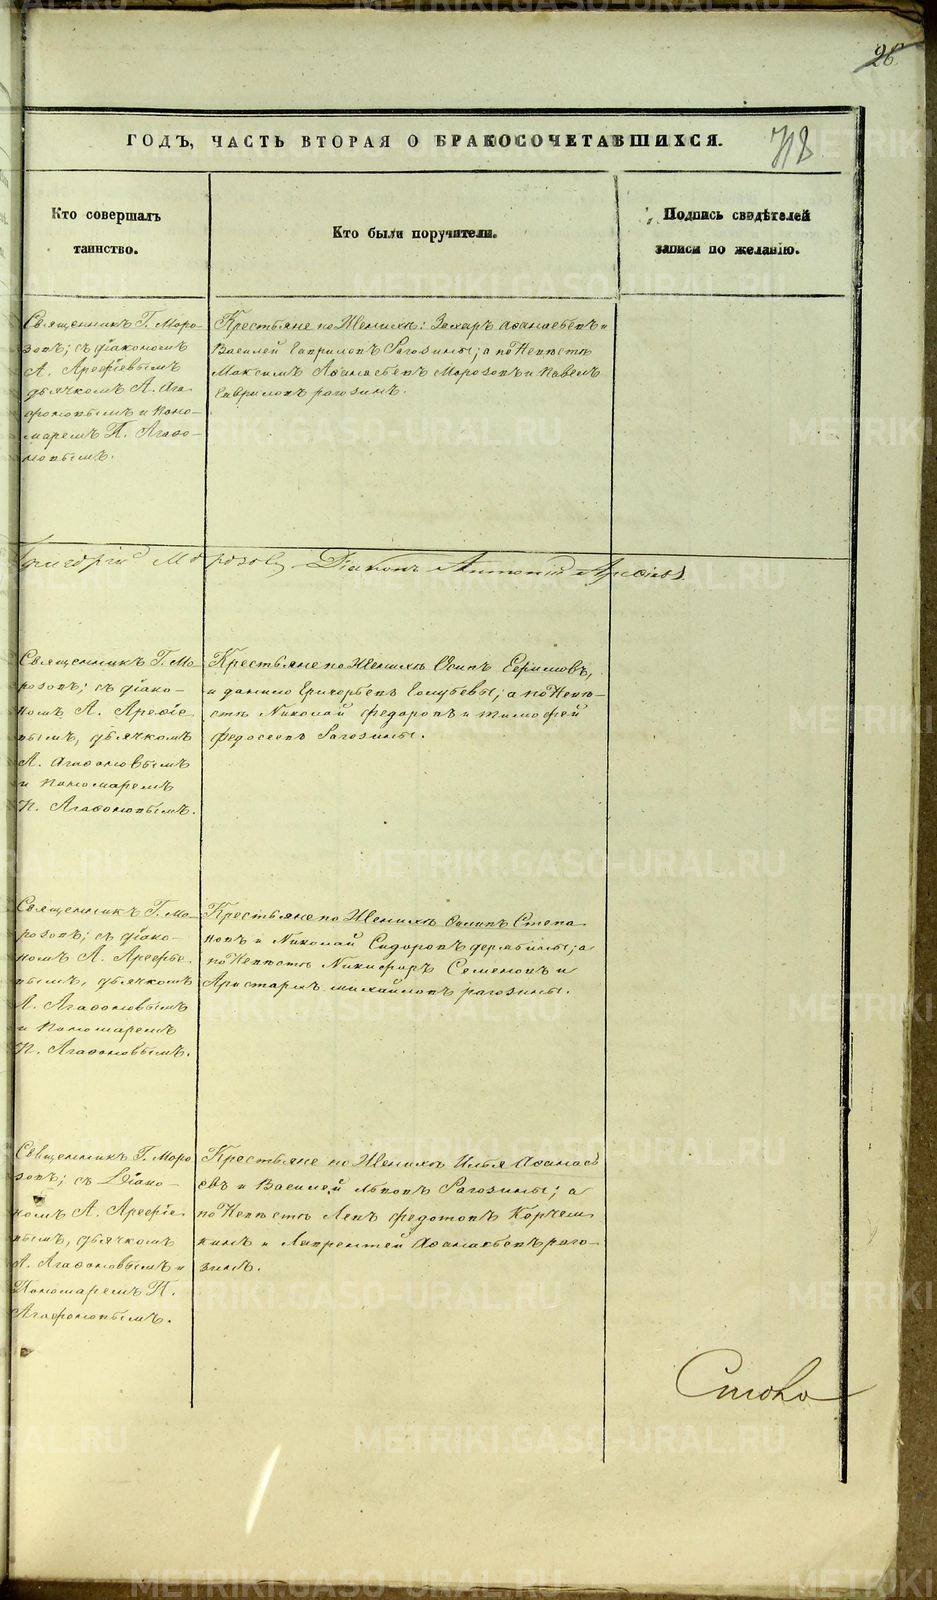 26
ГОДЪ, ЧАСТЬ ВТОРАЯ О БРАКОСОЧЕТАВШИХСЯ.
718
Кто совершалъ
таинство.
Кто были поручители.
Подпись свидѣтелей
записи по желанію.
Священникъ Г. Моро-
зовъ; съ діакономъ
А. Арефіевымъ
дьячкомъ А. Ага
фоновымъ и поно-
маремъ П. Агаѳо-
новымъ.
Крестьяне по женихѣ: Захаръ Аѳанасьевъ и
Василей Гавриловъ Рагозины; а по невѣстѣ
Максимъ Аѳанасьевъ Морозовъ и Павелъ
Гавриловъ рагозинъ.
Григорій Морозовъ Діаконъ Антоній Арефіевъ
Священникъ Г. Мо-
розовъ; съ діако-
номъ А. Арефіе
вымъ, дьячкомъ
А. Агаѳоновымъ
и пономаремъ
П. Агаѳоновымъ.
Крестьяне по женихѣ Осипъ Ефимовъ,
и данило Григорьевъ Голубевы; а по невѣ-
стѣ Николай федоровъ и тимофей
федосеевъ Рагозины.
Священникъ Г. Мо-
розовъ; съ діако-
номъ А. Арефье-
вымъ, дьячкомъ
А. Агаѳоновымъ
и пономаремъ
П. Агаѳоновымъ.
Крестьяне по женихѣ Степа
новъ и Николай Сидоровъ дерябины; а
по невѣстѣ Никифоръ Семеновъ и
Аристархъ михайловъ рагозины.
Священникъ Г. Моро
зовъ; съ Діако-
номъ А. Арефіе
вымъ, дьячкомъ
А. Агаѳоновымъ и
Пономаремъ П.
Агафоновымъ.
Крестьяне по женихѣ Илья Аѳанась
евъ и Василей львовъ Рагозины; а
по невѣстѣ Левъ федотовъ Корчем
кинъ и Лаврентей Аѳанасьевъ раго-
зинъ.